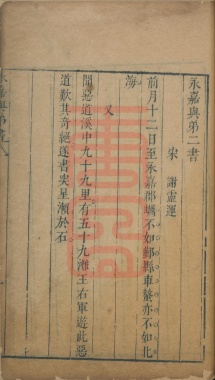 永嘉與弟二書
宋 謝靈運
前月十二日至永嘉郡蠣不如鄞縣車螯亦不如北
海
又
聞惡道溪中九十九里有五十九瀨王右軍遊此惡
道歎其奇絕遂書突星瀨於石